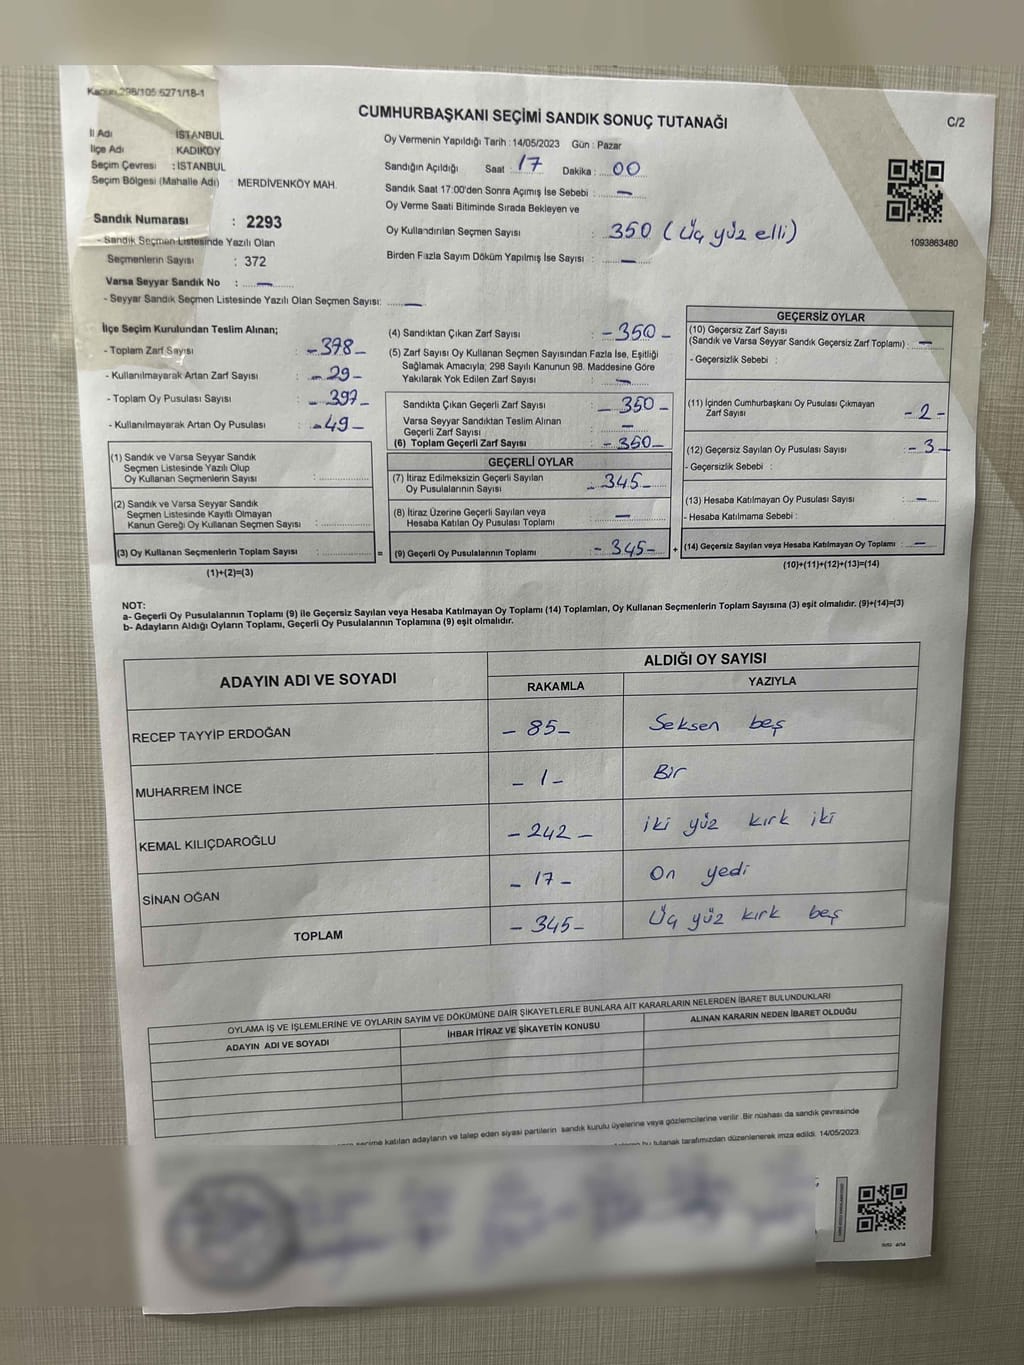 Kanun 298/105 6271/18-1
CUMHURBAŞKANI SEÇİMİ SANDIK SONUÇ TUTANAĞI
C/2
İl Adı İSTANBUL
İlçe Adı KADIKÖY
Seçim Çevresi : İSTANBUL
Seçim Bölgesi (Mahalle Adı) : MERDİVENKÖY MAH.
Oy Vermenin Yapıldığı Tarih : 14/05/2023 Gün : Pazar
Sandığın Açıldığı Saat : 17 Dakika : 00
Sandık Saat 17:00'den Sonra Açımış İse Sebebi : —
Oy Verme Saati Bitiminde Sırada Bekleyen ve
Oy Kullandırılan Seçmen Sayısı : 350 (Üç yüz elli)
Birden Fazla Sayım Döküm Yapılmış İse Sayısı : —
1093863480
Sandık Numarası : 2293
- Sandık Seçmen Listesinde Yazılı Olan
Seçmenlerin Sayısı : 372
Varsa Seyyar Sandık No : —
- Seyyar Sandık Seçmen Listesinde Yazılı Olan Seçmen Sayısı: —
İlçe Seçim Kurulundan Teslim Alınan;
- Toplam Zarf Sayısı : -378-
- Kullanılmayarak Artan Zarf Sayısı : -29-
- Toplam Oy Pusulası Sayısı : -397-
- Kullanılmayarak Artan Oy Pusulası : -49-
(1) Sandık ve Varsa Seyyar Sandık
Seçmen Listesinde Yazılı Olup
Oy Kullanan Seçmenlerin Sayısı :
(2) Sandık ve Varsa Seyyar Sandık
Seçmen Listesinde Kayıtlı Olmayan
Kanun Gereği Oy Kullanan Seçmen Sayısı :
(3) Oy Kullanan Seçmenlerin Toplam Sayısı : =
(1)+(2)=(3)
(4) Sandıktan Çıkan Zarf Sayısı : -350-
(5) Zarf Sayısı Oy Kullanan Seçmen Sayısından Fazla İse, Eşitliği
Sağlamak Amacıyla; 298 Sayılı Kanunun 98. Maddesine Göre
Yakılarak Yok Edilen Zarf Sayısı : —
Sandıkta Çıkan Geçerli Zarf Sayısı : -350-
Varsa Seyyar Sandıktan Teslim Alınan
Geçerli Zarf Sayısı : —
(6) Toplam Geçerli Zarf Sayısı : -350-
GEÇERLİ OYLAR
(7) İtiraz Edilmeksizin Geçerli Sayılan
Oy Pusulalarının Sayısı : -345-
(8) İtiraz Üzerine Geçerli Sayılan veya
Hesaba Katılan Oy Pusulası Toplamı : —
(9) Geçerli Oy Pusulalarının Toplamı : -345- +
GEÇERSİZ OYLAR
(10) Geçersiz Zarf Sayısı
(Sandık ve Varsa Seyyar Sandık Geçersiz Zarf Toplamı) : —
- Geçersizlik Sebebi :
(11) İçinden Cumhurbaşkanı Oy Pusulası Çıkmayan
Zarf Sayısı -2-
(12) Geçersiz Sayılan Oy Pusulası Sayısı : -3-
- Geçersizlik Sebebi :
(13) Hesaba Katılmayan Oy Pusulası Sayısı : —
- Hesaba Katılmama Sebebi :
(14) Geçersiz Sayılan veya Hesaba Katılmayan Oy Toplamı : —
(10)+(11)+(12)+(13)=(14)
NOT:
a- Geçerli Oy Pusulalarının Toplamı (9) ile Geçersiz Sayılan veya Hesaba Katılmayan Oy Toplamı (14) Toplamları, Oy Kullanan Seçmenlerin Toplam Sayısına (3) eşit olmalıdır. (9)+(14)=(3)
b- Adayların Aldığı Oyların Toplamı, Geçerli Oy Pusulalarının Toplamına (9) eşit olmalıdır.
ADAYIN ADI VE SOYADI
ALDIĞI OY SAYISI
RAKAMLA YAZIYLA
RECEP TAYYİP ERDOĞAN -85- Seksen beş
MUHARREM İNCE -1- Bir
KEMAL KILIÇDAROĞLU -242- iki yüz kırk iki
SİNAN OĞAN -17- On yedi
TOPLAM -345- Üç yüz kırk beş
OYLAMA İŞ VE İŞLEMLERİNE VE OYLARIN SAYIM VE DÖKÜMÜNE DAİR ŞİKAYETLERLE BUNLARA AİT KARARLARIN NELERDEN İBARET BULUNDUKLARI
ADAYIN ADI VE SOYADI İHBAR İTİRAZ VE ŞİKAYETİN KONUSU ALINAN KARARIN NEDEN İBARET OLDUĞU
seçime katılan adayların ve talep eden siyasi partilerin sandık kurulu üyelerine veya gözlemcilerine verilir. Bir nüshası da sandık çevresinde
bu tutanak tarafımızdan düzenlenerek imza edildi. 14/05/2023